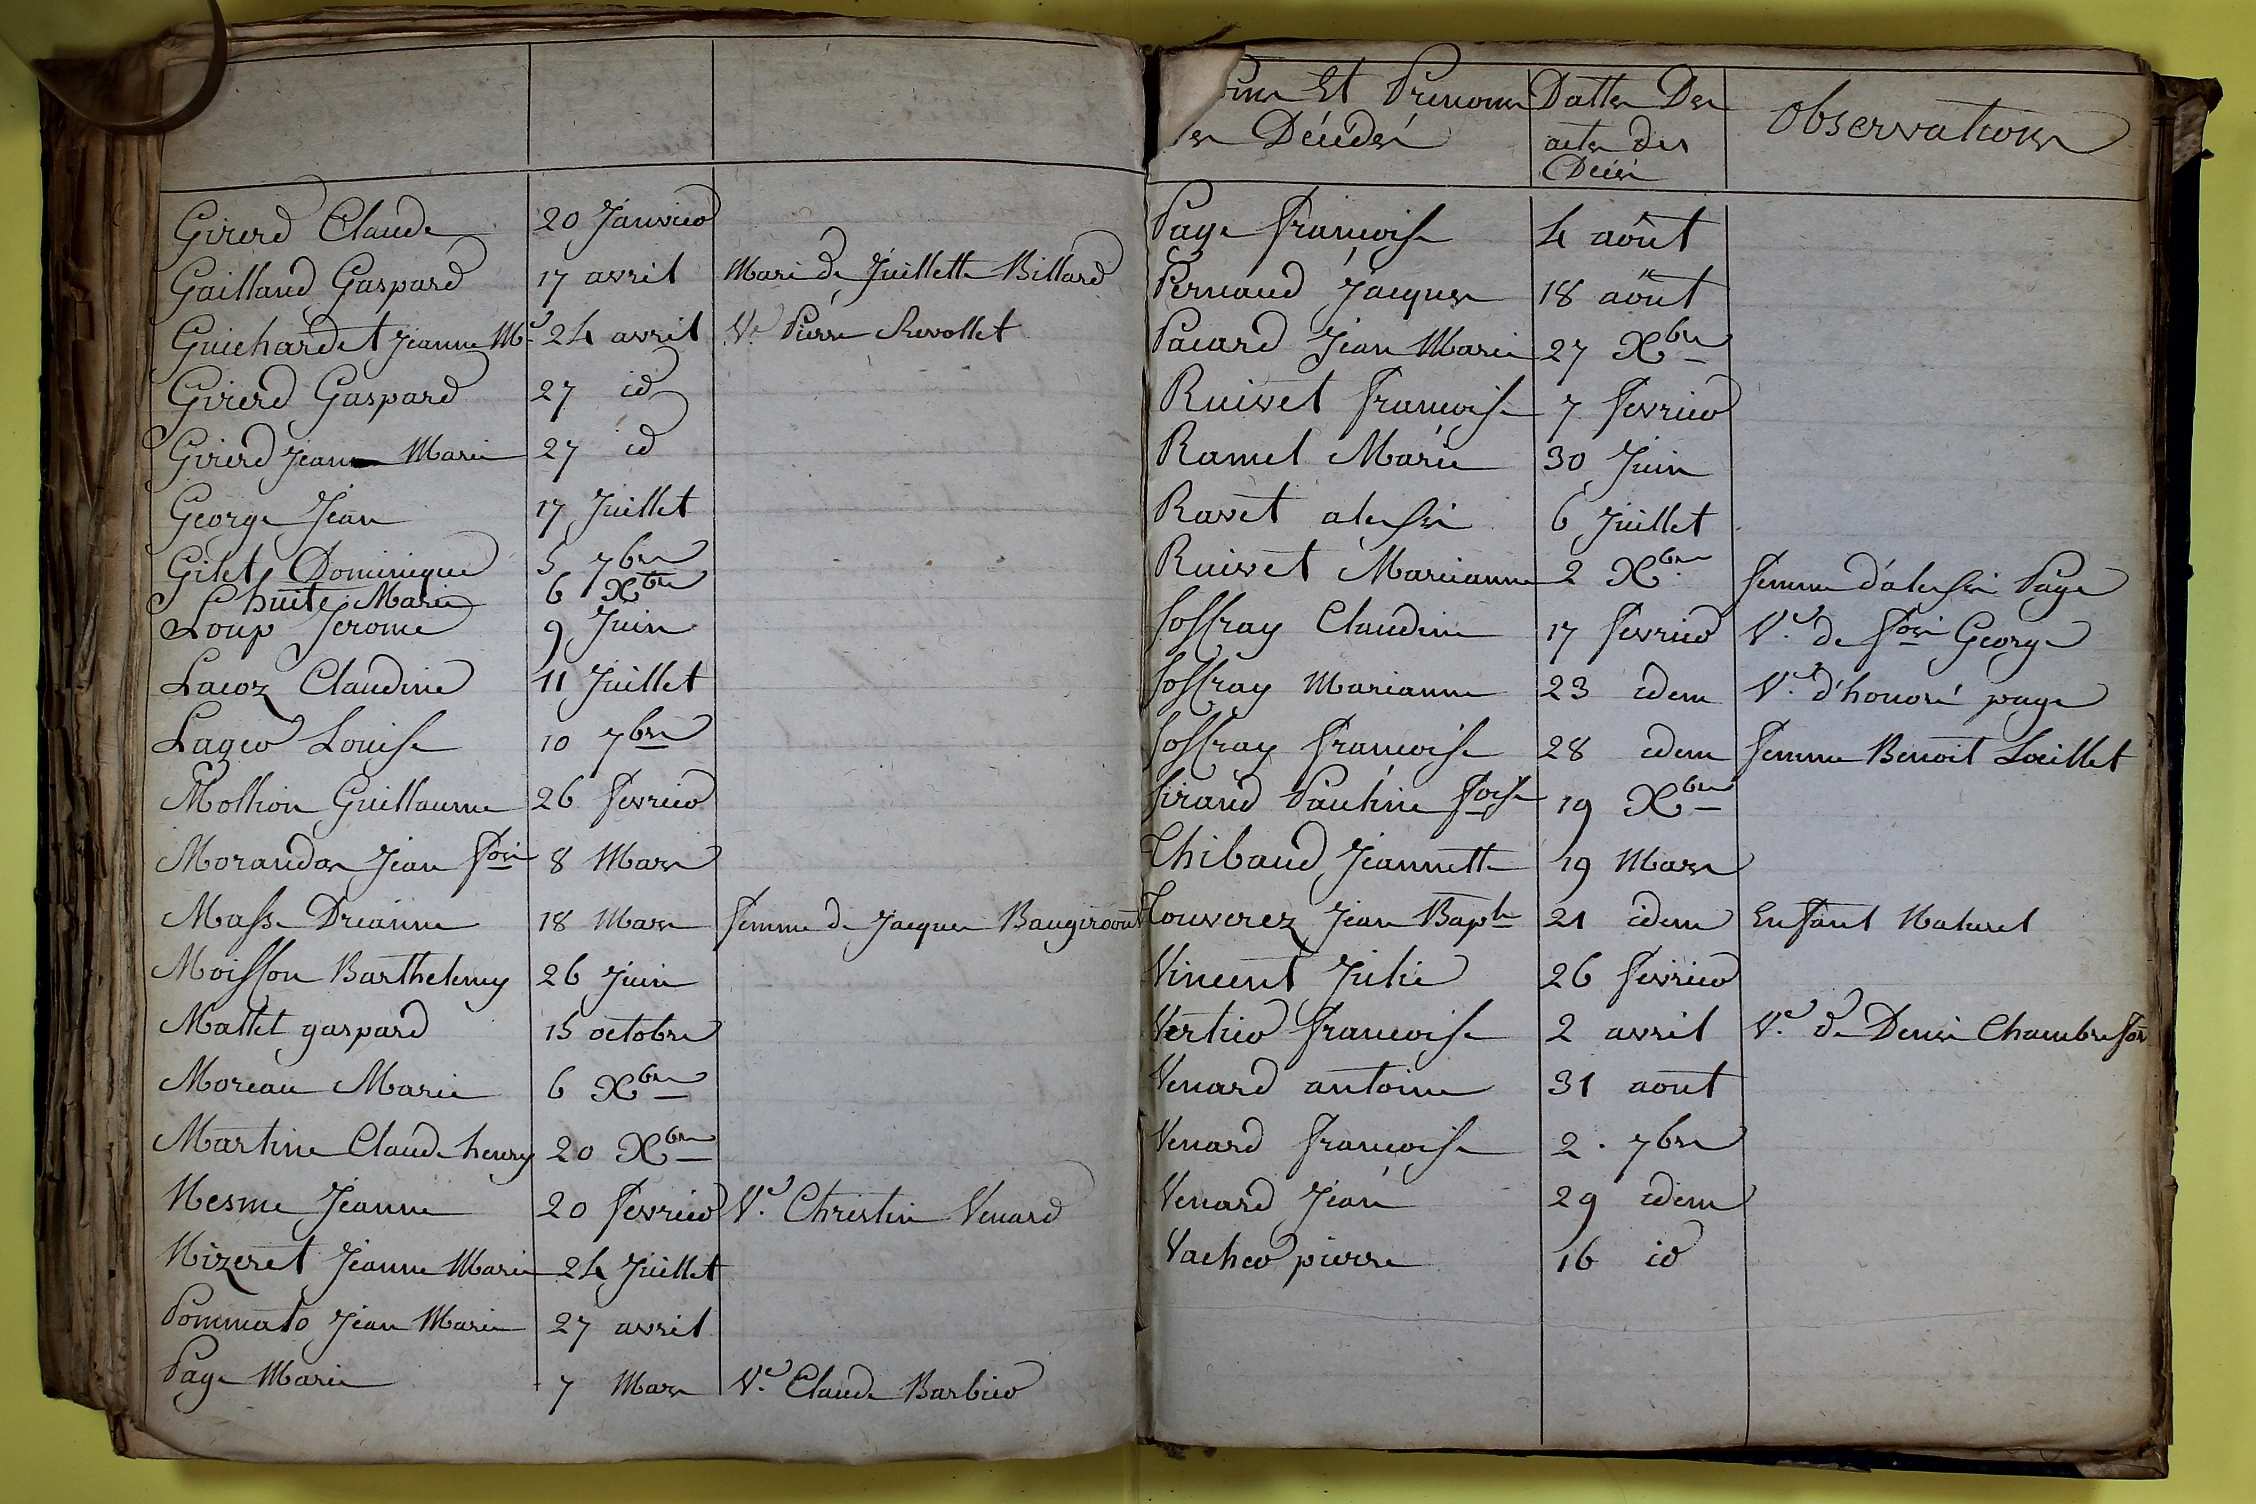 Girerd Claude 20 Janvier
Gailland Gaspard 17 avril Mari de Juillette Billard
Guichardet Jeanne Mie 24 avril Ve Pierre Revollet
Girerd Gaspard 27 id
Girerd Jean Marie 27 id
George Jean 17 Juillet
Gilet Dominique 5 7bre
Lhuite Marie 6 Xbre
Loup Jerome 9 Juin
Lacoz Claudine 11 Juillet
Lager Louise 10 7bre
Mothion Guillaume 26 fevrier
Morandas Jean fois 8 Mars
Masse Dreanne 18 Mars femme de Jacques
Moisson Barthelemy 26 Juin
Mallet gaspard 15 octobre
Moreau Marie 6 Xbre
Martine Claude henry 20 Xbre
Mesme Jeanne 20 fevrier Ve Christin Venard
Nizeret Jeanne Marie 24 Juillet
Pommato Jean Marie 27 avril
Page Marie 7 Mars Ve Claude Barbier
Et Prenoms Dattes Des Observations
Décédés actes des
Décés
Page françoise 4 août
Pernaud Jacques 18 août
Pacard Jean Marie 27 Xbre
Ruivet françoise 7 fevrier
Ramel Marie 30 Juin
Ravet alexis 6 Juillet
Ruivet Marianne 2 Xbre femme d'alexis Page
Soffray Claudine 17 fevrier Ve de fois George
Soffray Marianne 23 idem Ve d'honoré page
Soffray françoise 28 idem femme Benoit Loeillet
Siraud Pauline foise 19 Xbre
Thibaud Jeannette 19 Mars
Touverez Jean Bapte 21 idem Enfant Naturel
Vincent Julie 26 fevrier
Vertier francoise 2 avril Ve de Denis Chambre fois
Venard antoine 31 aout
Venard françoise 2. 7bre
Venard Jean 29 idem
Vacher pierre 16 id